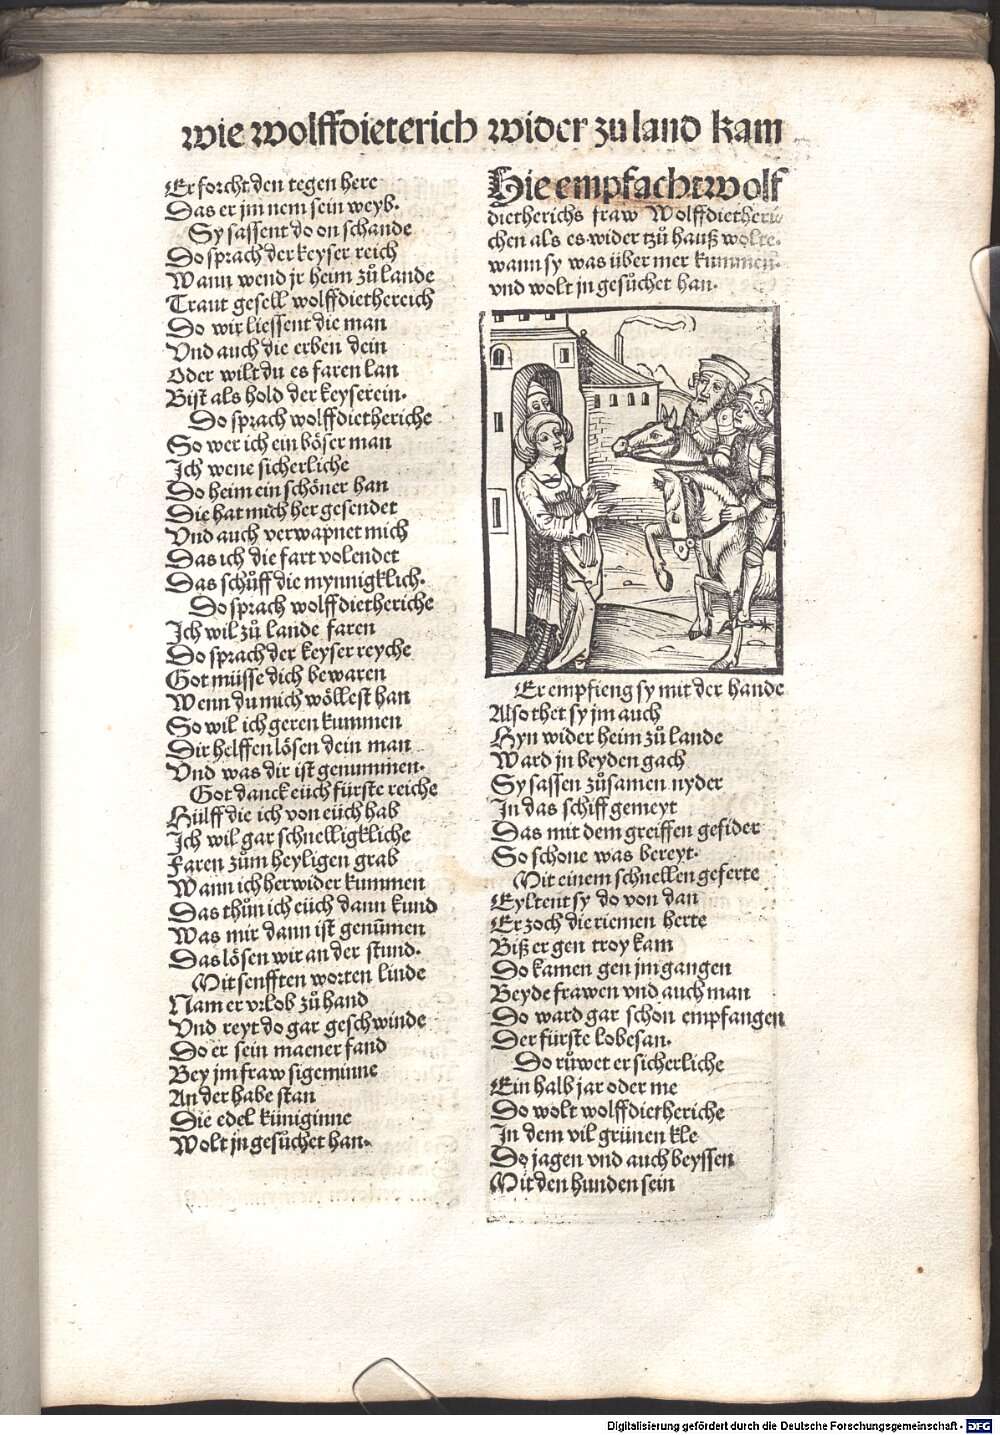 wie wolffdieterich wider zu land kam
Er forcht den tegen here
Das er jm nem sein weyb.
Sy sassent do on schande
Do sprach der keyser reich
Wann wend jr heim zů lande
Traut gesell wolffdiethereich
Do wir liessent die man
Vnd auch die erben dein
Oder wilt du es faren lan
Bist als hold der keyserein.
Do sprach wolffdietheriche
So wer ich ein böser man
Ich wene sicherliche
Do heim ein schöner han
Die hat mich her gesendet
Vnd auch verwapnet mich
Das ich die fart volendet
Das schůff die mynnigklich.
Do sprach wolffdietheriche
Ich wil zů lande faren
Do sprach der keyser reyche
Got müsse dich bewaren
Wenn du mich wöllest han
So wil ich geren kummen
Dir helffen lösen dein man
Vnd was dir ist genummen.
Got danck eüch fürste reiche
Hülff die ich von eüch hab
Ich wil gar schnelligkliche
Faren zům heyligen grab
Wann ich herwider kummen
Das thůn ich eüch dann kund
Was mir dann ist genūmen
Das lösen wir an der stund.
Mit senfften worten linde
Nam er vrlob zů hand
Vnd reyt do gar geschwinde
Do er sein maener fand
Bey jm fraw sigeminne
An der habe stan
Die edel küniginne
Wolt jn gesůchet han.
Hie empfacht wolf
dietherichs fraw Wolffdietheri
chen als es wider tzů hauß wolte.
wann sy was über mer kummen.
vnd wolt jn gesůchet han.
Er empfieng sy mit der hande
Also thet sy jm auch
Hyn wider heim zů lande
Ward jn beyden gach
Sy sassen zůsamen nyder
In das schiff gemeyt
Das mit dem greiffen gefider
So schone was bereyt.
Mit einem schnellen geferte
Eyltent sy do von dan
Er zoch die riemen herte
Biß er gen troy kam
Do kamen gen jm gangen
Beyde frawen vnd auch man
Do ward gar schon empfangen
Der fürste lobesan.
Do růwet er sicherliche
Ein halb jar oder me
Do wolt wolffdietheriche
In dem vil grünen kle
Do jagen vnd auch beyssen
Mit den hunden sein
Digitalisierung gefördert durch die Deutsche Forschungsgemeinschaft - DFG